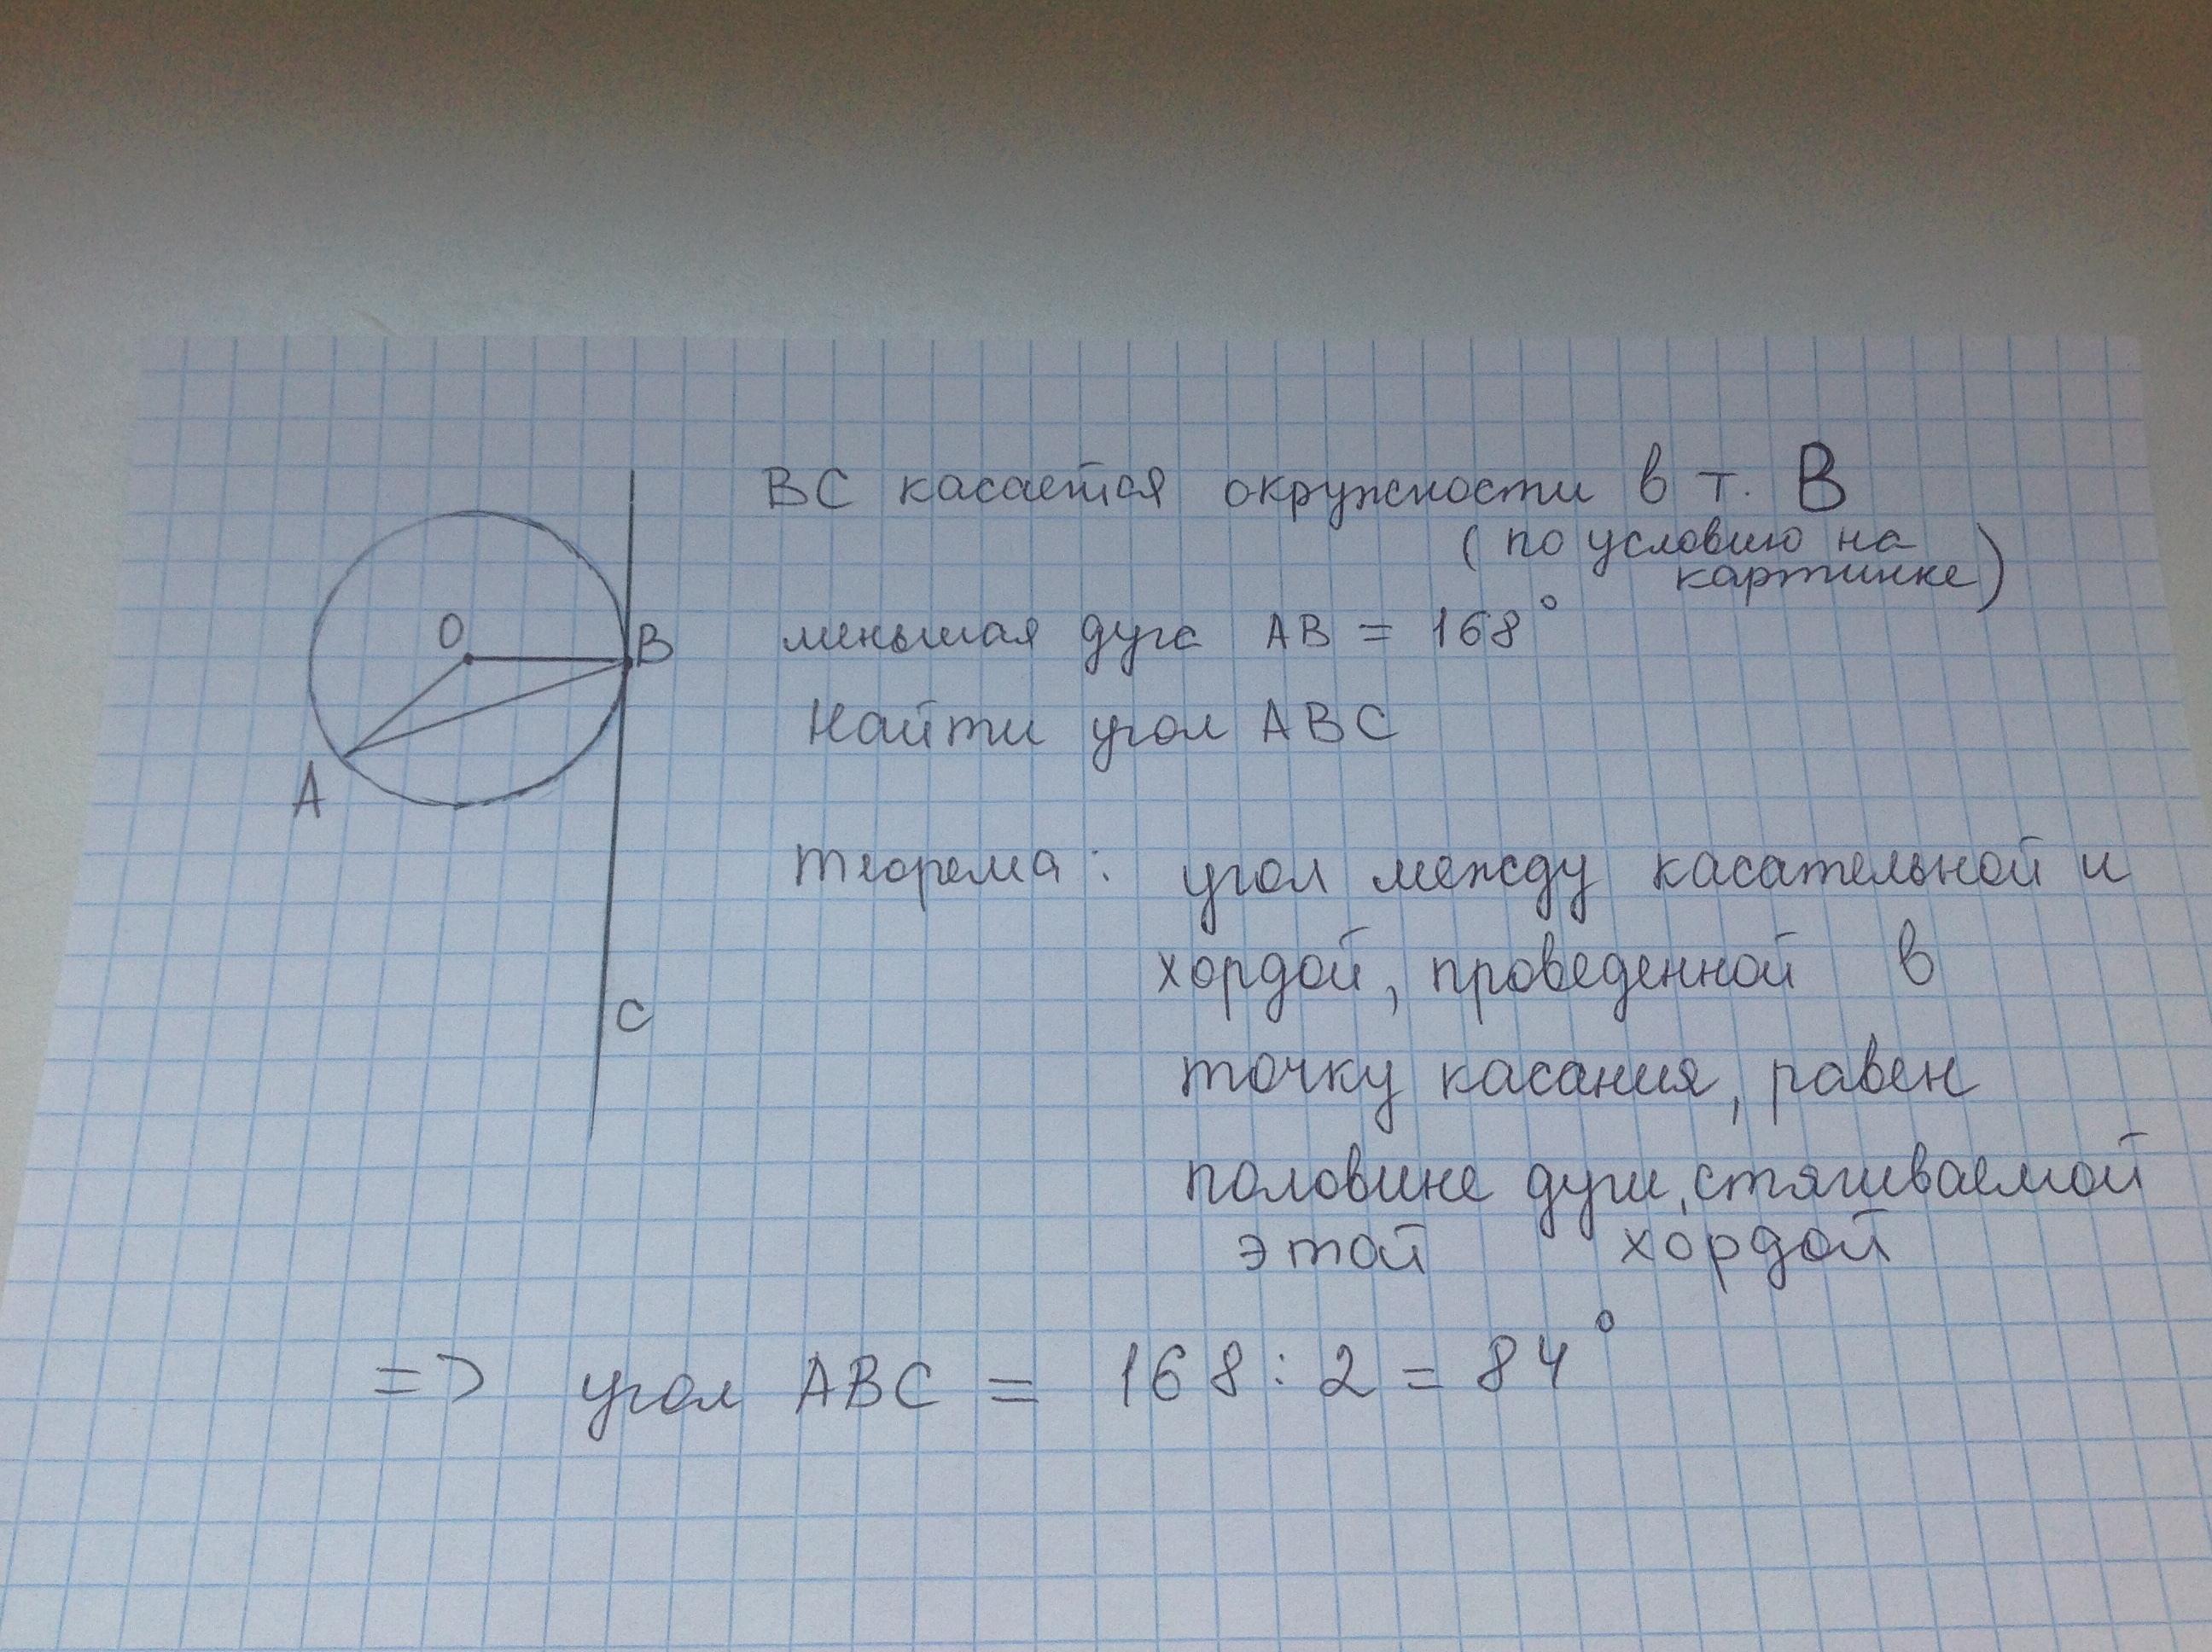 ВС касается окружности в т. В
(по условию на
картинке)
О
В
меньшая дуга АВ = 168°
Найти угол АВС
А
теорема: угол между касательной и
хордой, проведенной в
С
точку касания, равен
половине дуги, стягиваемой
этой хордой
=> угол АВС = 168 : 2 = 84°